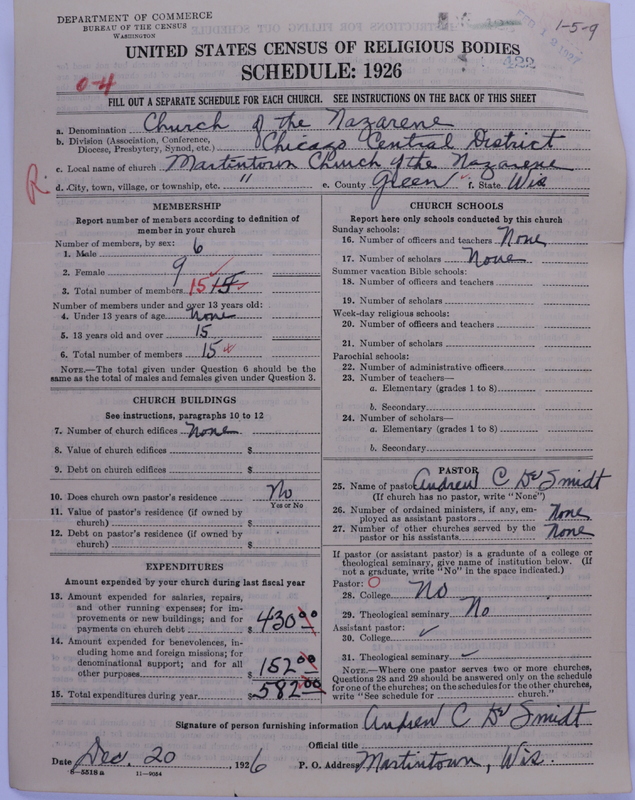 DEPARTMENT OF COMMERCE
BUREAU OF THE CENSUS
WASHINGTON
1-5-9
422
UNITED STATES CENSUS OF RELIGIOUS BODIES
SCHEDULE: 1926
0-4
FILL OUT A SEPARATE SCHEDULE FOR EACH CHURCH. SEE INSTRUCTIONS ON THE BACK OF THIS SHEET
a. Denomination Church of the Nazarene
b. Division (Association, Conference, Diocese, Presbytery, Synod, etc.) Chicago Central District
c. Local name of church Martintown Church of the Nazarene
R.
d. City, town, village, or township, etc. " e. County Green f. State Wis
MEMBERSHIP
Report number of members according to definition of member in your church
Number of members, by sex:
1. Male 6
2. Female 9
3. Total number of members 15 15
Number of members under and over 13 years old:
4. Under 13 years of age None
5. 13 years old and over 15
6. Total number of members 15
NOTE.—The total given under Question 6 should be the same as the total of males and females given under Question 3.
CHURCH BUILDINGS
See instructions, paragraphs 10 to 12
7. Number of church edifices None
8. Value of church edifices $
9. Debt on church edifices $
10. Does church own pastor's residence No
Yes or No
11. Value of pastor's residence (if owned by church) $
12. Debt on pastor's residence (if owned by church) $
EXPENDITURES
Amount expended by your church during last fiscal year
13. Amount expended for salaries, repairs, and other running expenses; for improvements or new buildings; and for payments on church debt $430.00
14. Amount expended for benevolences, including home and foreign missions; for denominational support; and for all other purposes 152.00
15. Total expenditures during year $582.00
CHURCH SCHOOLS
Report here only schools conducted by this church
Sunday schools:
16. Number of officers and teachers None
17. Number of scholars None
Summer vacation Bible schools:
18. Number of officers and teachers
19. Number of scholars
Week-day religious schools:
20. Number of officers and teachers
21. Number of scholars
Parochial schools:
22. Number of administrative officers
23. Number of teachers—
a. Elementary (grades 1 to 8)
b. Secondary
24. Number of scholars—
a. Elementary (grades 1 to 8)
b. Secondary
PASTOR
25. Name of pastor Andrew C De Smidt
(If church has no pastor, write "None")
26. Number of ordained ministers, if any, employed as assistant pastors None
27. Number of other churches served by the pastor or his assistants None
If pastor (or assistant pastor) is a graduate of a college or theological seminary, give name of institution below. (If not a graduate, write "No" in the space indicated.)
Pastor:
28. College No
29. Theological seminary No
Assistant pastor:
30. College ✓
31. Theological seminary ✓
NOTE.—Where one pastor serves two or more churches, Questions 28 and 29 should be answered only on the schedule for one of the churches; on the schedules for the other churches, write "See schedule for church."
Signature of person furnishing information Andrew C De Smidt
Official title
Date Dec. 20, 1926 P. O. Address Martintown, Wis.
8-5518 a 11-9054